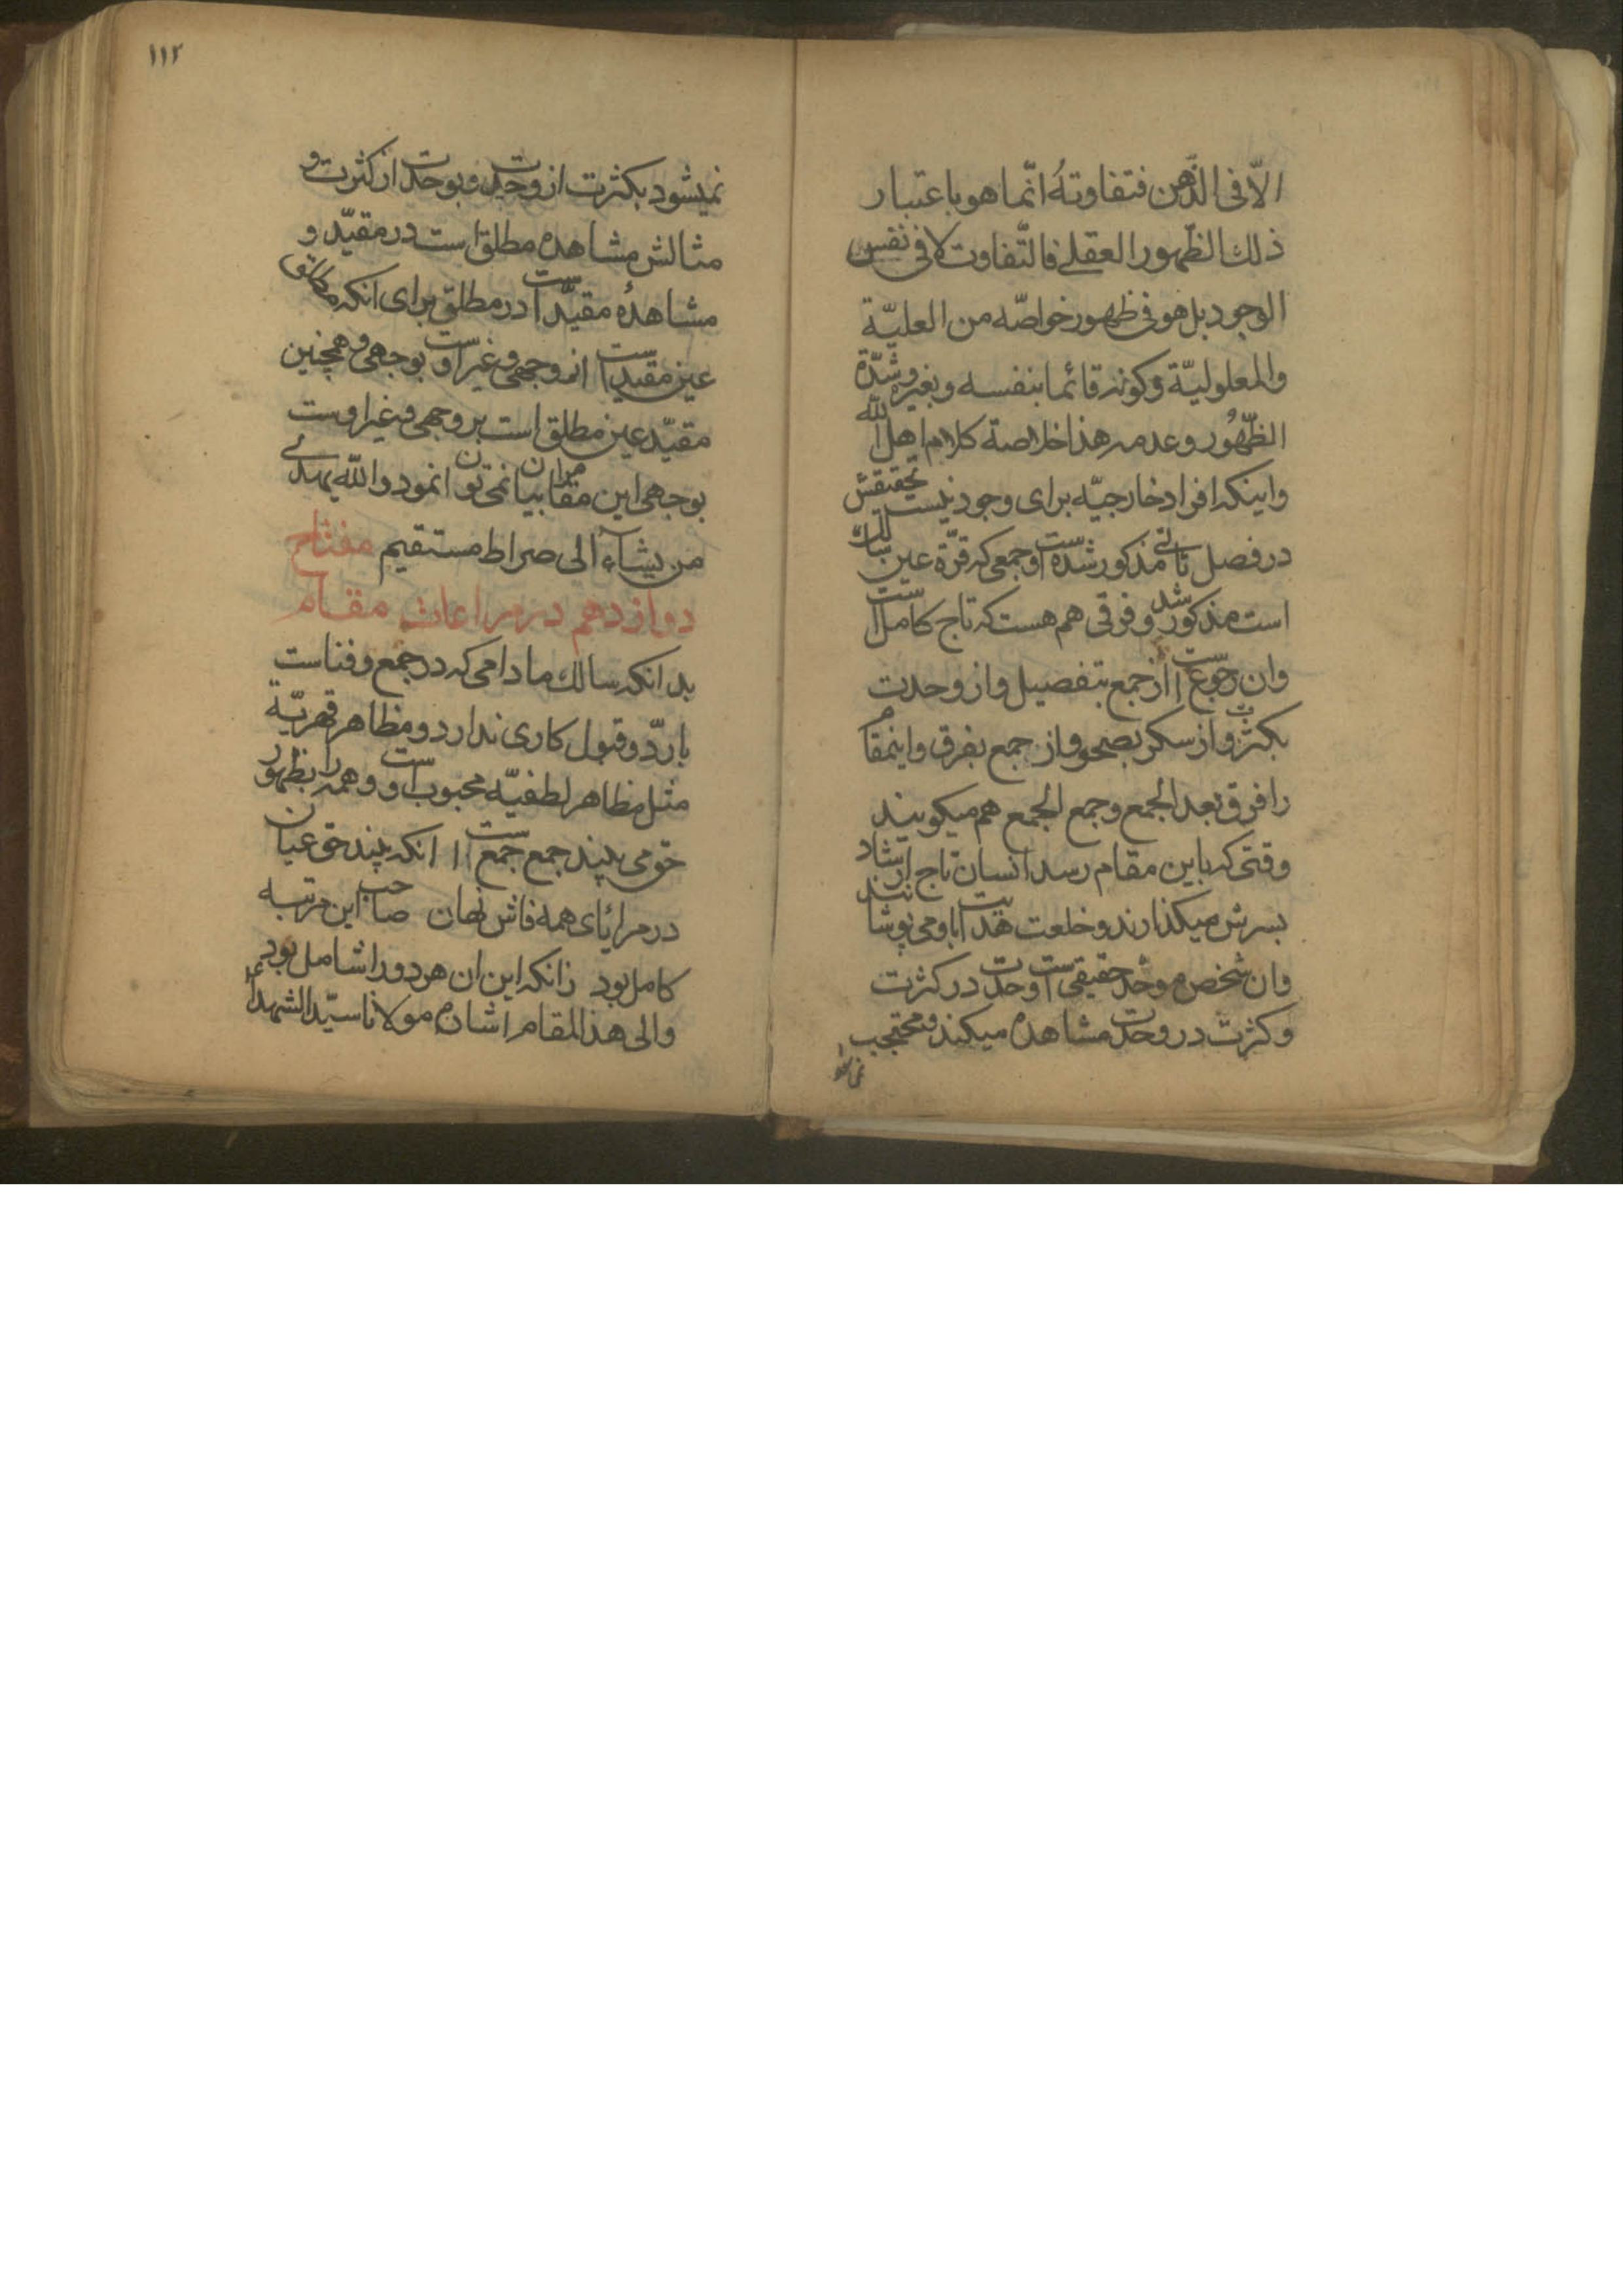 الّا فی الذّهن فتفاوتهُ انّما هو باعتبار
ذلك الظّهور العقلے فالتّفاوت لا فی نفس
الوجود بل هو فی ظهور خواصّه من العلیّة
والمعلولیّة وکونه قائما بنفسه وبغیره وشدّة
الظّهُور وعدمه هذا خلاصة کلام اهل الله
واینکه افراد خارجیّه برای وجود نیست تحقیقش
در فصل ثانے مذکور شده است وجمعی که قرّة عین سالك
است مذکور شد وفرقی هم هست که تاج کامل است
وان رجوع است از جمع بتفصیل واز وحدت
بکثرت واز سکر بصحو واز جمع بفرق واینمقام
را فرق بعد الجمع وجمع الجمع هم میکویند
وقتی که باین مقام رسد انسان تاج ارشاد
بسرش میکذارند وخلعت هدایت باو می پوشانند
وان شخص موحّد حقیقی است وحدت در کثرت
وکثرت در وحدت مشاهده میکند ومحتجب
۱۱۲
نمیشود بکثرت از وحدت وبوحدت از کثرت و
مثالش مشاهده مطلق است در مقیّد و
مشاهدهٔ مقیّد است در مطلق برای انکه مطلق
عین مقید است از وجهی وغیر اوست بوجهی وهمچنین
مقیّد عین مطلق است بر وجهی وغیر اوست
بوجهی این مقام را بیان نمی توان نمود والله یهدے
من یشآء الی صراط مستقیم مفتاح
دوازدهم در مراعات مقام
بدانکه سالك مادامی که در جمع وفناست
با ردّ وقبول کاری ندارد ومظاهر قهریّة
مثل مظاهر لطفیّه محبوب اوست وهمه را بظهور
حق می بیند جمع جمع است انکه بیند حق عیان
در مرایای همه فاش نهان صاحب این مرتبه
کامل بود زانکه این ان هر دو را شامل بود
والی هذا المقام اشار مولانا سیّد الشهدا